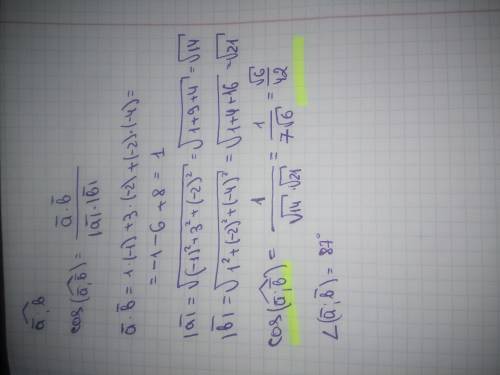 a̅,^b
cos(a̅;^b̅) = a̅·b̅ / |a̅|·|b̅|
a̅·b̅ = 1·(-1)+3·(-2)+(-2)·(-4)=
= -1-6+8 = 1
|a̅| = √((-1)²+3²+(-2)²) = √(1+9+4) = √14
|b̅| = √(1²+(-2)²+(-4)²) = √(1+4+16) = √21
cos(a̅;^b̅) = 1/(√14·√21) = 1/(7√6) = √6/42
∠(a̅;b̅) = 87°